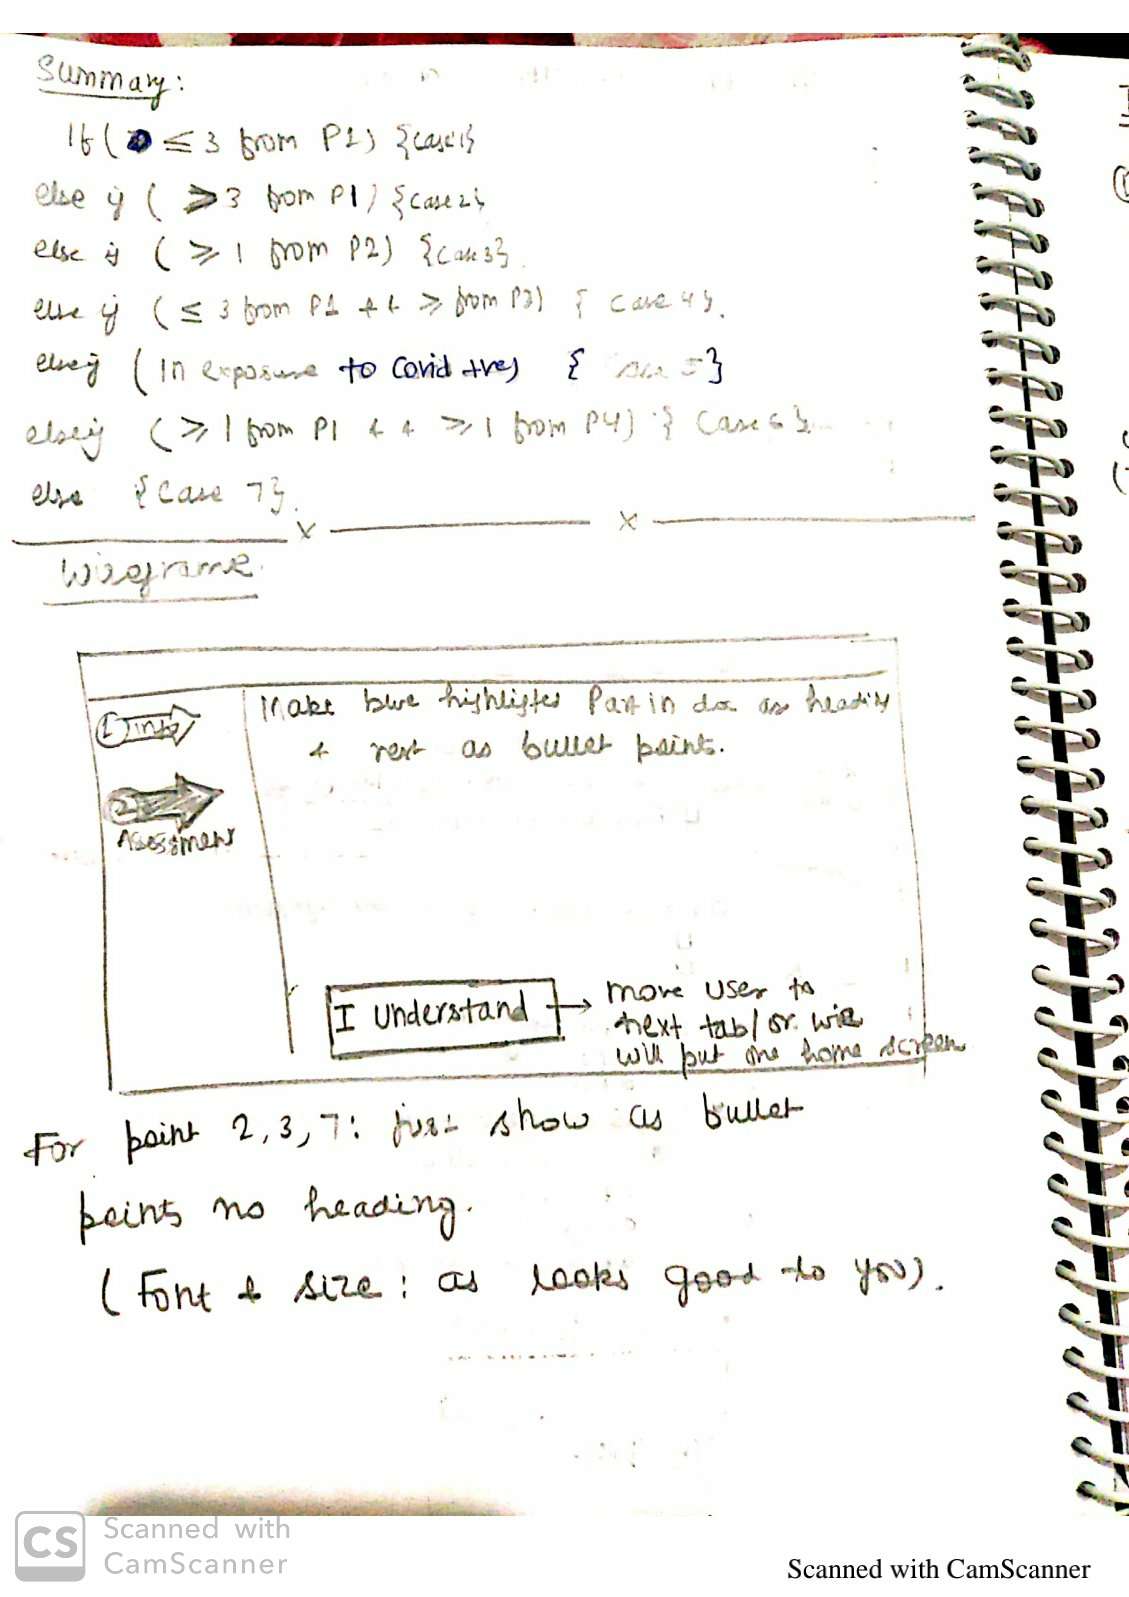 Summary:
If ( ≤ 3 from P1) {case1}
else if ( ≥ 3 from P1) {case2}
else if ( ≥ 1 from P2) {case3}.
else if ( ≤ 3 from P1 && ≥ from P3) { case 4}.
else if ( In exposure to Covid +ve) { 5}
else if ( ≥ 1 from P1 && ≥ 1 from P4) { Case 6}
else { Case 7}.
x x
Wireframe.
1 info
Make blue highlighted Part in doc as heading
& rest as bullet points.
2
Assessment
I Understand → move user to
next tab/or we
will put one home screen
For point 2,3,7: just show as bullet
points no heading.
(Font & size: as looks good to you).
CS Scanned with
CamScanner
Scanned with CamScanner